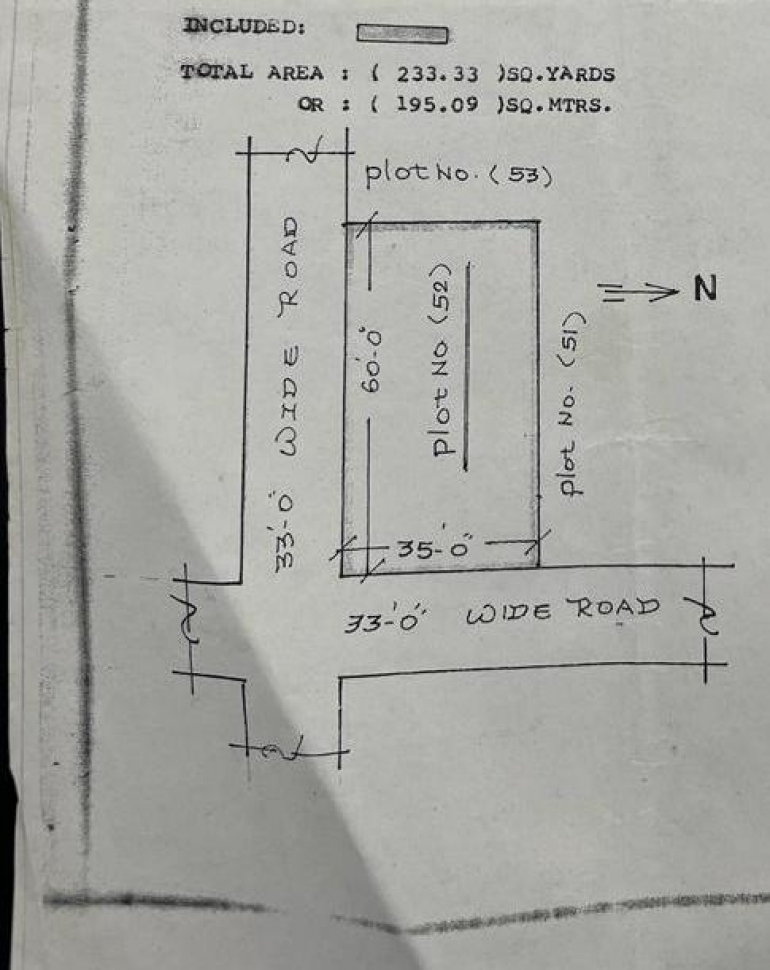 INCLUDED:
TOTAL AREA : ( 233.33 )SQ.YARDS
OR : ( 195.09 )SQ.MTRS.
plot No. (53)
33'-0" WIDE ROAD
60'-0"
plot No (52)
plot No. (51)
N
35'-0"
33'-0" WIDE ROAD